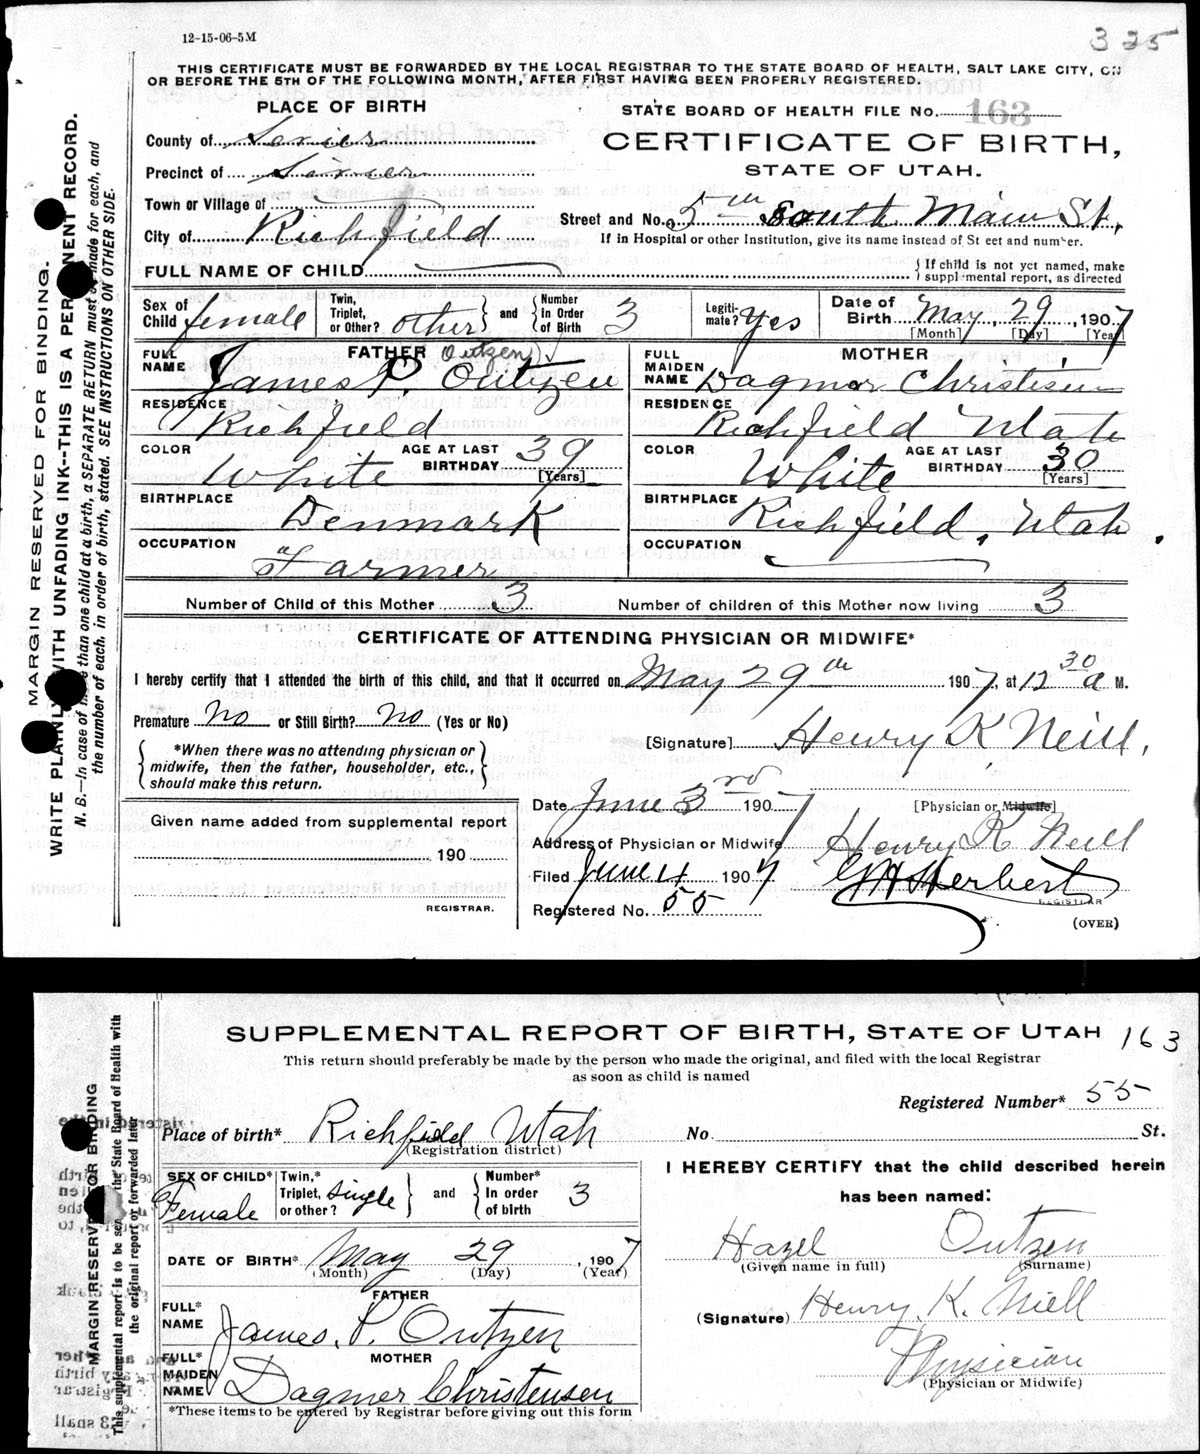 12-15-06-5M
3 25
THIS CERTIFICATE MUST BE FORWARDED BY THE LOCAL REGISTRAR TO THE STATE BOARD OF HEALTH, SALT LAKE CITY, ON
OR BEFORE THE 5TH OF THE FOLLOWING MONTH, AFTER FIRST HAVING BEEN PROPERLY REGISTERED.
PLACE OF BIRTH
County of Sevier
Precinct of Sevier
Town or Village of
City of Richfield
STATE BOARD OF HEALTH FILE No. 163
CERTIFICATE OF BIRTH,
STATE OF UTAH.
Street and No. 5th South Main St,
If in Hospital or other Institution, give its name instead of St eet and number.
FULL NAME OF CHILD
{ If child is not yet named, make
suppl·mental report, as directed
Sex of Child female
Twin, Triplet, or Other? other } and { Number In Order of Birth 3
Legiti-mate? Yes
Date of Birth May, 29, 1907
[Month] [Day] [Year]
FATHER
Outzen
FULL NAME James P. Outzen
RESIDENCE Richfield
COLOR White
AGE AT LAST BIRTHDAY 39
[Years]
BIRTHPLACE Denmark
OCCUPATION Farmer
MOTHER
FULL MAIDEN NAME Dagmar Christisen
RESIDENCE Richfield Utah
COLOR White
AGE AT LAST BIRTHDAY 30
[Years]
BIRTHPLACE Richfield, Utah.
OCCUPATION
Number of Child of this Mother 3
Number of children of this Mother now living 3
CERTIFICATE OF ATTENDING PHYSICIAN OR MIDWIFE*
I hereby certify that I attended the birth of this child, and that it occurred on May 29th 1907, at 12 30 a M.
Premature No or Still Birth? No (Yes or No)
{ *When there was no attending physician or
midwife, then the father, householder, etc.,
should make this return. }
[Signature] Henry K Neill,
Date June 3rd 1907
[Physician or Midwife]
Address of Physician or Midwife Henry K Neill
Filed June 4 1907 G H Herbert
REGISTRAR
Registered No. 55
(OVER)
Given name added from supplemental report
190
REGISTRAR.
MARGIN RESERVED FOR BINDING.
WRITE PLAINLY WITH UNFADING INK--THIS IS A PERMANENT RECORD.
N. B.—In case of more than one child at a birth, a SEPARATE RETURN must be made for each, and
the number of each, in order of birth, stated. SEE INSTRUCTIONS ON OTHER SIDE.
SUPPLEMENTAL REPORT OF BIRTH, STATE OF UTAH 163
This return should preferably be made by the person who made the original, and filed with the local Registrar
as soon as child is named
Registered Number* 55
Place of birth* Richfield Utah
(Registration district)
No. St.
SEX OF CHILD* Female
Twin,* Triplet, or other? single } and { Number* In order of birth 3
DATE OF BIRTH* May 29, 1907
(Month) (Day) (Year)
FATHER
FULL* NAME James. P. Outzen
MOTHER
FULL* MAIDEN NAME Dagmer Christensen
*These items to be entered by Registrar before giving out this form
I HEREBY CERTIFY that the child described herein
has been named:
Hazel Outzen
(Given name in full) (Surname)
(Signature) Henry. K. Niell
Physician
(Physician or Midwife)
MARGIN RESERVED FOR BINDING
This supplemental report is to be sent the State Board of Health with
the original report or forwarded later